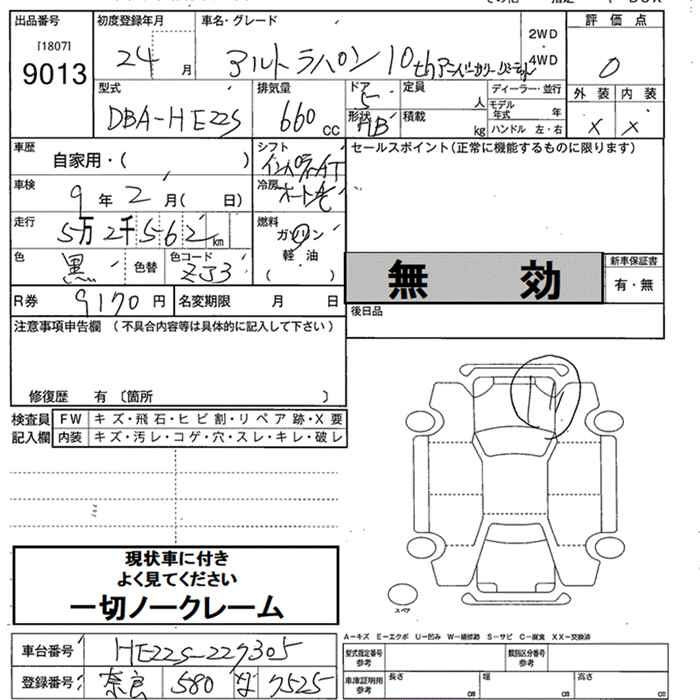 出品番号 初度登録年月 車名・グレード 評価点
[1807]
9013 24 月 アルトラパン 10th アニバーサリーリミテッド 2WD 4WD 0
型式 排気量 ドア 定員 ディーラー・並行 外装 内装
DBA-HE22S 660 CC 5 人 モデル年式 年 X X
形状 HB 積載 kg ハンドル 左・右
車歴 自家用・( ) シフト インパネAT セールスポイント(正常に機能するものに限ります)
車検 9年 2月( 日) 冷房
走行 5万 2千 5 6 2 km 燃料 ガソリン
色 黒 色替 色コード ZJ3 軽油 ( )
無効 新車保証書 有・無
R券 9170 円 名変期限 月 日 後日品
注意事項申告欄 (不具合内容等は具体的に記入して下さい)
修復歴 有 〔箇所 〕
検査員記入欄 FW キズ・飛石・ヒビ割・リペア跡・X要
内装 キズ・汚レ・コゲ・穴・スレ・キレ・破レ
現状車に付き
よく見てください
一切ノークレーム
スペア
A-キズ E-エクボ U-凹み W-補修跡 S-サビ C-腐食 XX-交換済
車台番号 HE22S-227305 型式指定番号 参考 類別区分番号 参考
登録番号 奈良 580 な 7525 車庫証明用 参考 長さ 幅 高さ